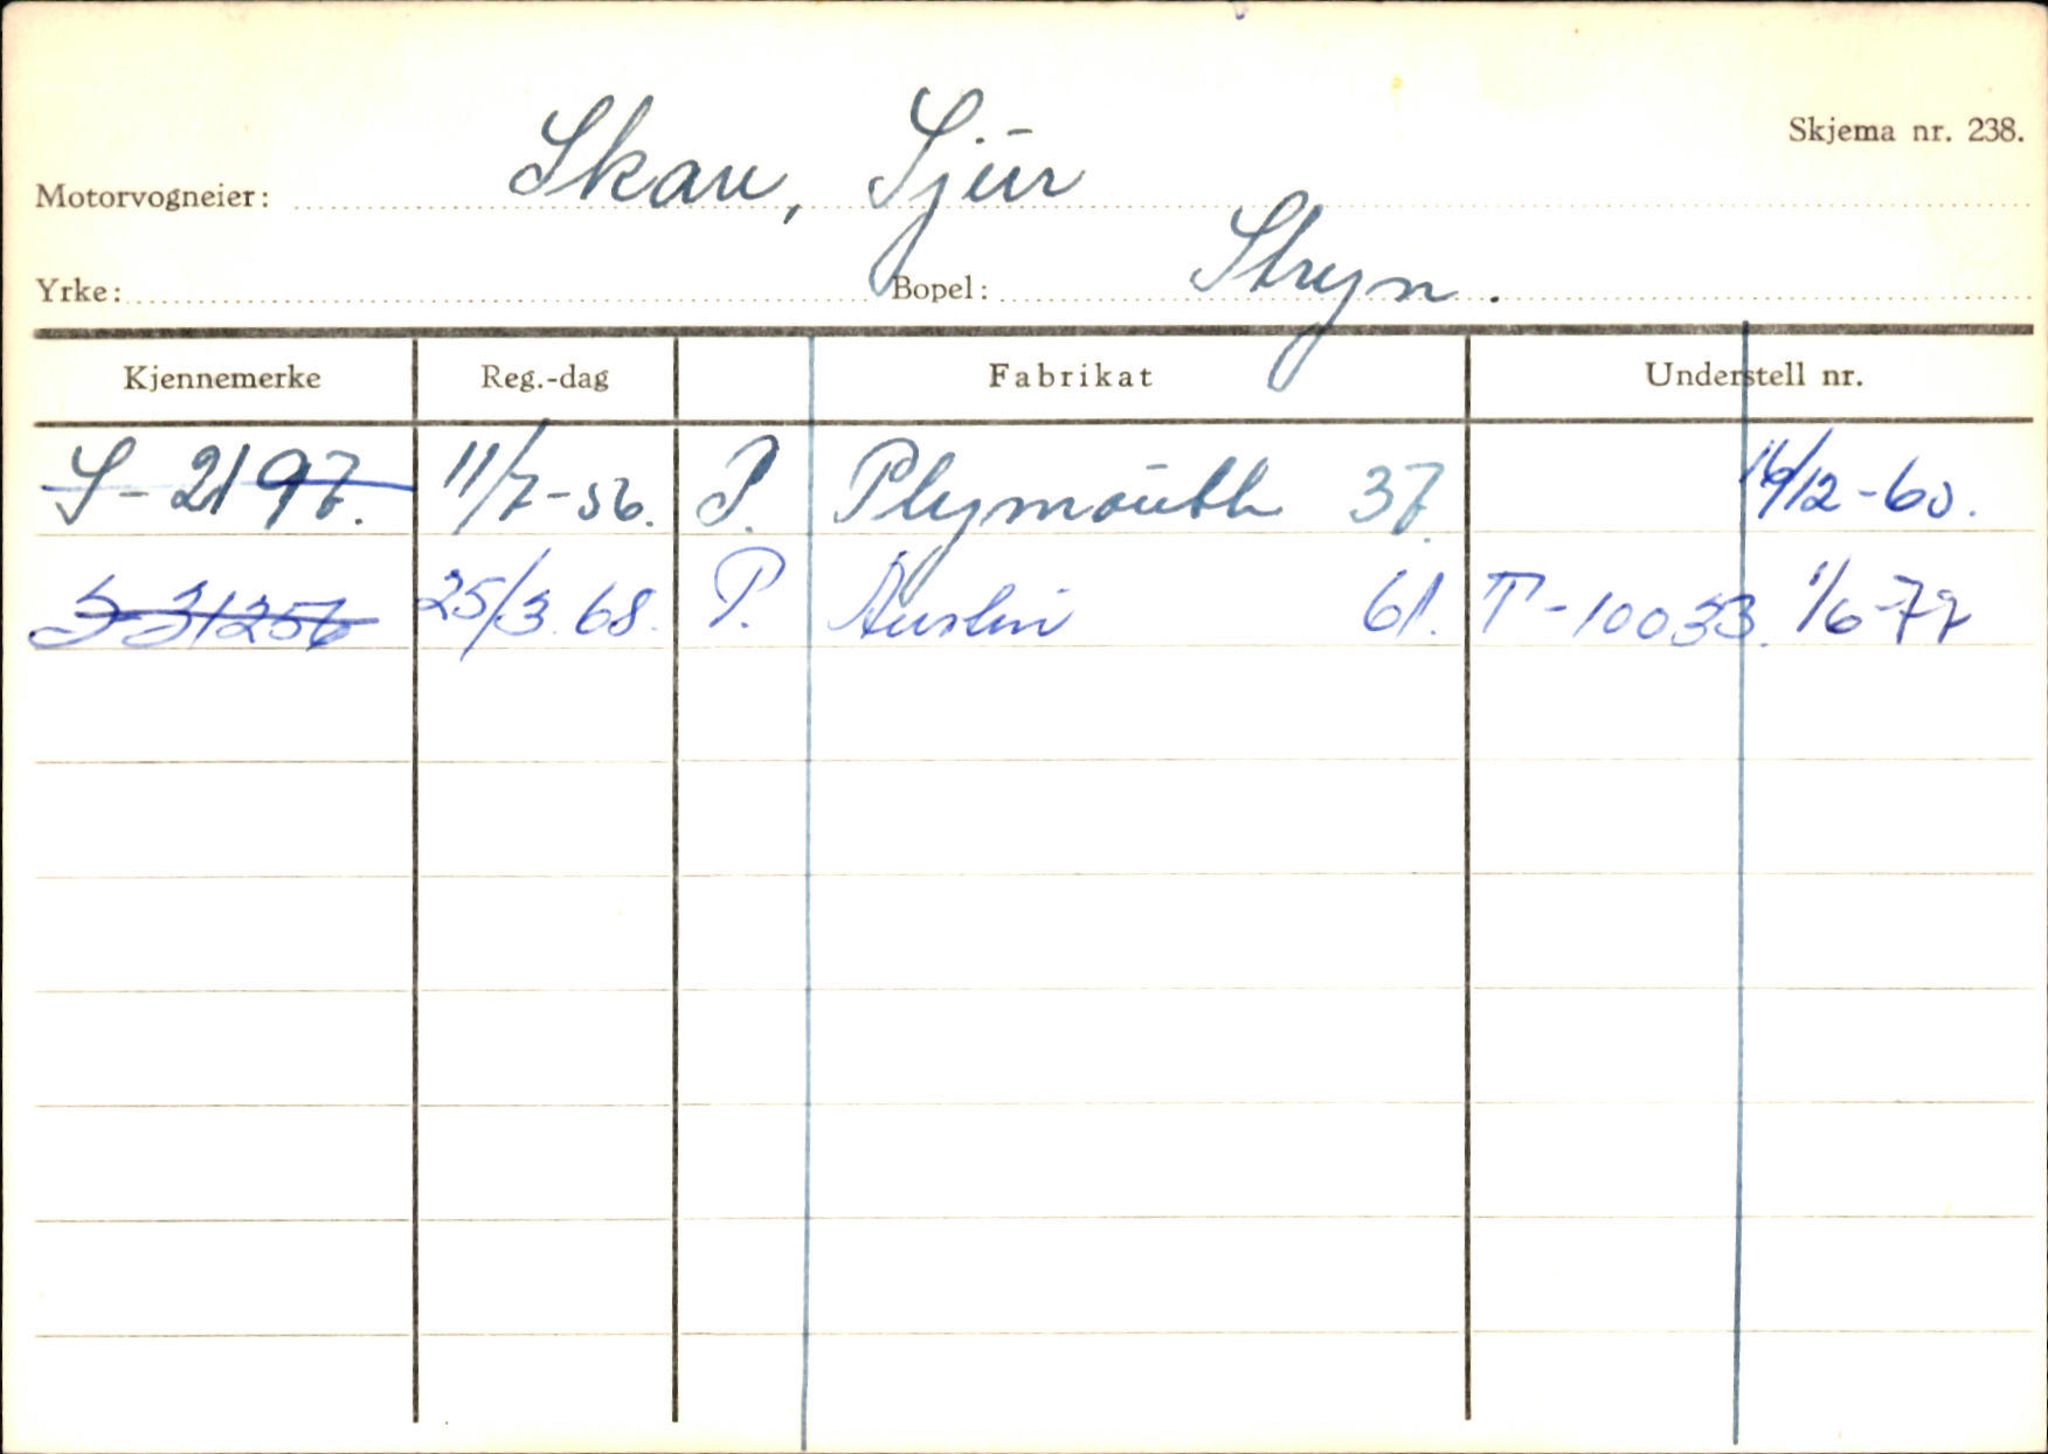 Skjema nr. 238.
Motorvogneier: Skau, Sjur
Yrke: Bopel: Stryn.
Kjennemerke Reg.-dag Fabrikat Understell nr.
S-2197. 11/7-56. P. Plymouth 37. 14/12-60.
S-31256 25/3.68. P. Austin 61. T-10033. 1/6-72